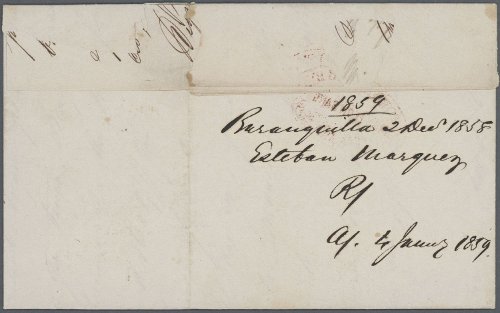 1859
Baranquilla 2 Decr 1858
Esteban Marquez
R/
A/. 4 Januy 1859.